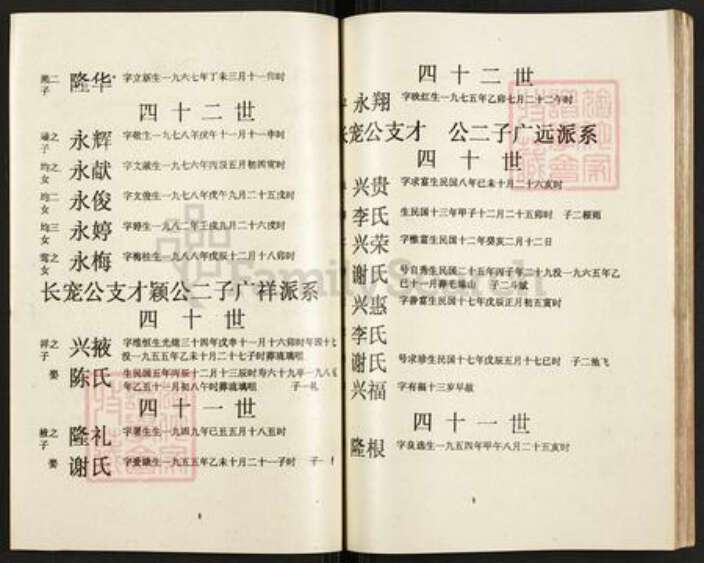 隆华 字立新生一九六七年丁未三月十一卯时
四十二世
之子 永辉 字敬生一九七八年戊午十一月十一申时
之女 永献 字文献生一九七六年丙辰五月初四寅时
均二女 永俊 字文俊生一九七八年戊午九月二十五戌时
均三女 永婷 字婷生一九八二年壬戌九月二十六戌时
之女 永梅 字梅桂生一九八八年戊辰十二月十八卯时
长宠公支才颖公二子广祥派系
四十世
祥之子 兴掖 字维恒生光绪三十四年戊申十一月十六卯时年四十七
没一九五五年乙未十月二十七子时葬琉璃咀
娶 陈氏 生民国五年丙辰十二月十三辰时寿六十九卒一九八五
年乙丑十一月初八午时葬琉璃咀 子一礼
四十一世
掖之子 隆礼 字署生生一九四九年已丑五月十八丑时
娶 谢氏 字爱娣生一九五五年乙未十月二十一子时 子一
四十二世
永翔 字映红生一九七五年乙卯七月二十二午时
长宠公支才 公二子广远派系
四十世
兴贵 字求富生民国八年己未十月二十六亥时
李氏 生民国十三年甲子十二月二十五卯时 子二根
兴荣 字惟富生民国十二年癸亥二月十二日
谢氏 号自秀生民国二十五年丙子年二十九没一九六五年乙
巳十一月葬毛塘山 子二斗斌
兴惠 字善富生民国十七年戊辰正月初五寅时
李氏
谢氏 号求珍生民国十七年戊辰五月十七巳时 子二池飞
兴福 字有福十三岁早故
四十一世
隆根 字良选生一九五四年甲午八月二十五亥时
FamilySearch